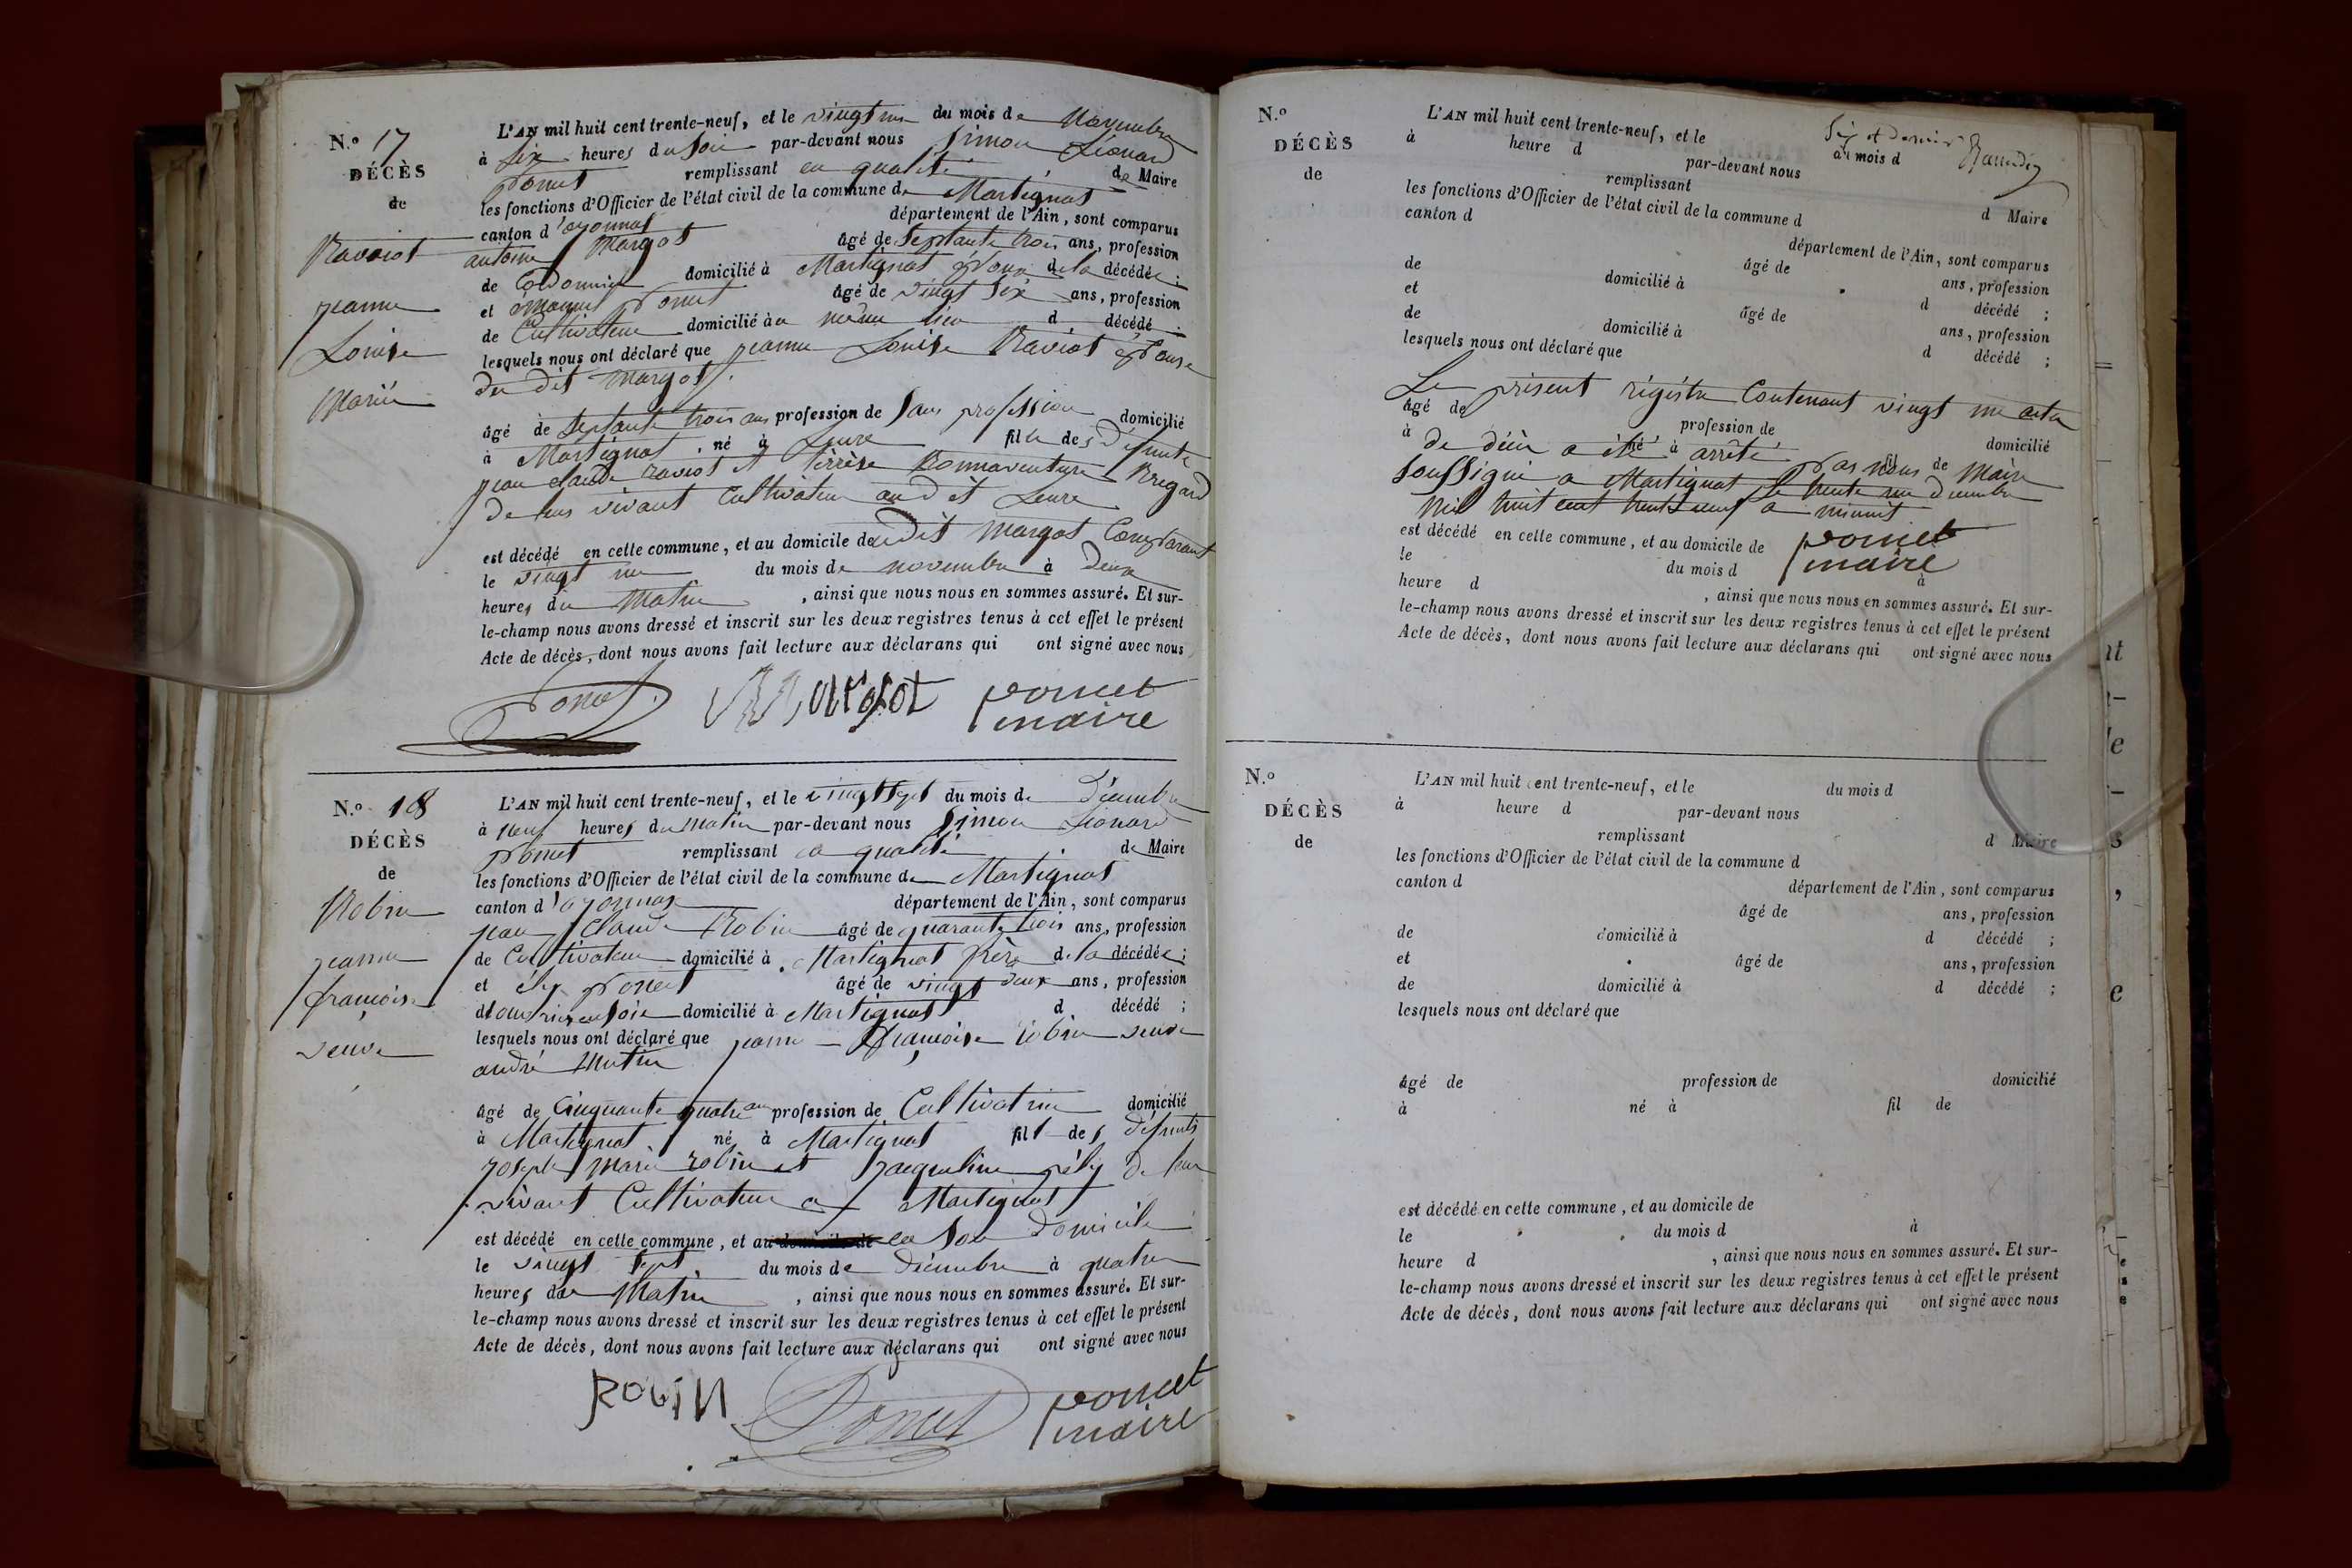 N.o 17
DÉCÈS
de
Raviot
jeanne
Louise
Mariée
L'AN mil huit cent trente-neuf, et le vingt un du mois de Novembre
à six heures du soir par-devant nous Simon Léonard
Poncet remplissant en qualité de Maire
les fonctions d'Officier de l'état civil de la commune de Martignat
canton d'oyonnax département de l'Ain, sont comparus
antoine Margot âgé de Septante trois ans, profession
de Cordonnier domicilié à Martignat époux de la décédée ;
et Poncet âgé de vingt six ans, profession
de Cultivateur domicilié au même lieu d décédé ;
lesquels nous ont déclaré que jeanne Louise Raviot épouse
du dit margot
âgé de Septante trois ans profession de Sans profession domicilié
à Martignat né à Leure fille des défunts
jean claude raviot et Térrèse Bonnaventure Bregard
de leurs vivant Cultivateur au dit Leure
est décédé en cette commune, et au domicile du dit margot Comparant
le vingt un du mois de novembre à deux
heures du Matin , ainsi que nous nous en sommes assuré. Et sur-
le-champ nous avons dressé et inscrit sur les deux registres tenus à cet effet le présent
Acte de décès, dont nous avons fait lecture aux déclarans qui ont signé avec nous
Poncet Margot poncet
maire
N.o 18
DÉCÈS
de
Robin
jeanne
françoise
veuve
L'AN mil huit cent trente-neuf, et le vingt sept du mois de Décembre
à neuf heures du matin par-devant nous Simon Léonard
Poncet remplissant en qualité de Maire
les fonctions d'Officier de l'état civil de la commune de Martignat
canton d'oyonnax département de l'Ain, sont comparus
jean claude Robin âgé de quarante trois ans, profession
de Cultivateur domicilié à Martignat frère de la décédée ;
et Poncet âgé de vingt deux ans, profession
d'ouvrier en soie domicilié à Martignat d décédé ;
lesquels nous ont déclaré que jeanne françoise robin veuve
andré Mutin
âgé de Cinquante quatre ans profession de Cultivatrice domicilié
à Martignat né à Martignat fille des défunts
joseph marie robin et jacqueline de leur
vivant Cultivateur à Martignat
est décédé en cette commune, et au domicile de en son domicile
le vingt sept du mois de décembre à quatre
heures du Matin , ainsi que nous nous en sommes assuré. Et sur-
le-champ nous avons dressé et inscrit sur les deux registres tenus à cet effet le présent
Acte de décès, dont nous avons fait lecture aux déclarans qui ont signé avec nous
ROBIN Poncet poncet
maire
N.o
DÉCÈS
de
Six et dernier
L'AN mil huit cent trente-neuf, et le du mois d
à heure d par-devant nous
remplissant d Maire
les fonctions d'Officier de l'état civil de la commune d
canton d département de l'Ain, sont comparus
âgé de ans, profession
de domicilié à d décédé ;
et âgé de ans, profession
de domicilié à d décédé ;
lesquels nous ont déclaré que
Le présent régistre Contenant vingt un actes
âgé de profession de domicilié
de décès a été arrêté par nous Maire
à né à fil de
soussigné a Martignat le trente un décembre
mil huit cent trente neuf a minuit
est décédé en cette commune, et au domicile de poncet
maire
le du mois d à
heure d , ainsi que nous nous en sommes assuré. Et sur-
le-champ nous avons dressé et inscrit sur les deux registres tenus à cet effet le présent
Acte de décès, dont nous avons fait lecture aux déclarans qui ont signé avec nous
N.o
DÉCÈS
de
L'AN mil huit cent trente-neuf, et le du mois d
à heure d par-devant nous
remplissant d Maire
les fonctions d'Officier de l'état civil de la commune d
canton d département de l'Ain, sont comparus
âgé de ans, profession
de domicilié à d décédé ;
et âgé de ans, profession
de domicilié à d décédé ;
lesquels nous ont déclaré que
âgé de profession de domicilié
à né à fil de
est décédé en cette commune, et au domicile de
le du mois d à
heure d , ainsi que nous nous en sommes assuré. Et sur-
le-champ nous avons dressé et inscrit sur les deux registres tenus à cet effet le présent
Acte de décès, dont nous avons fait lecture aux déclarans qui ont signé avec nous